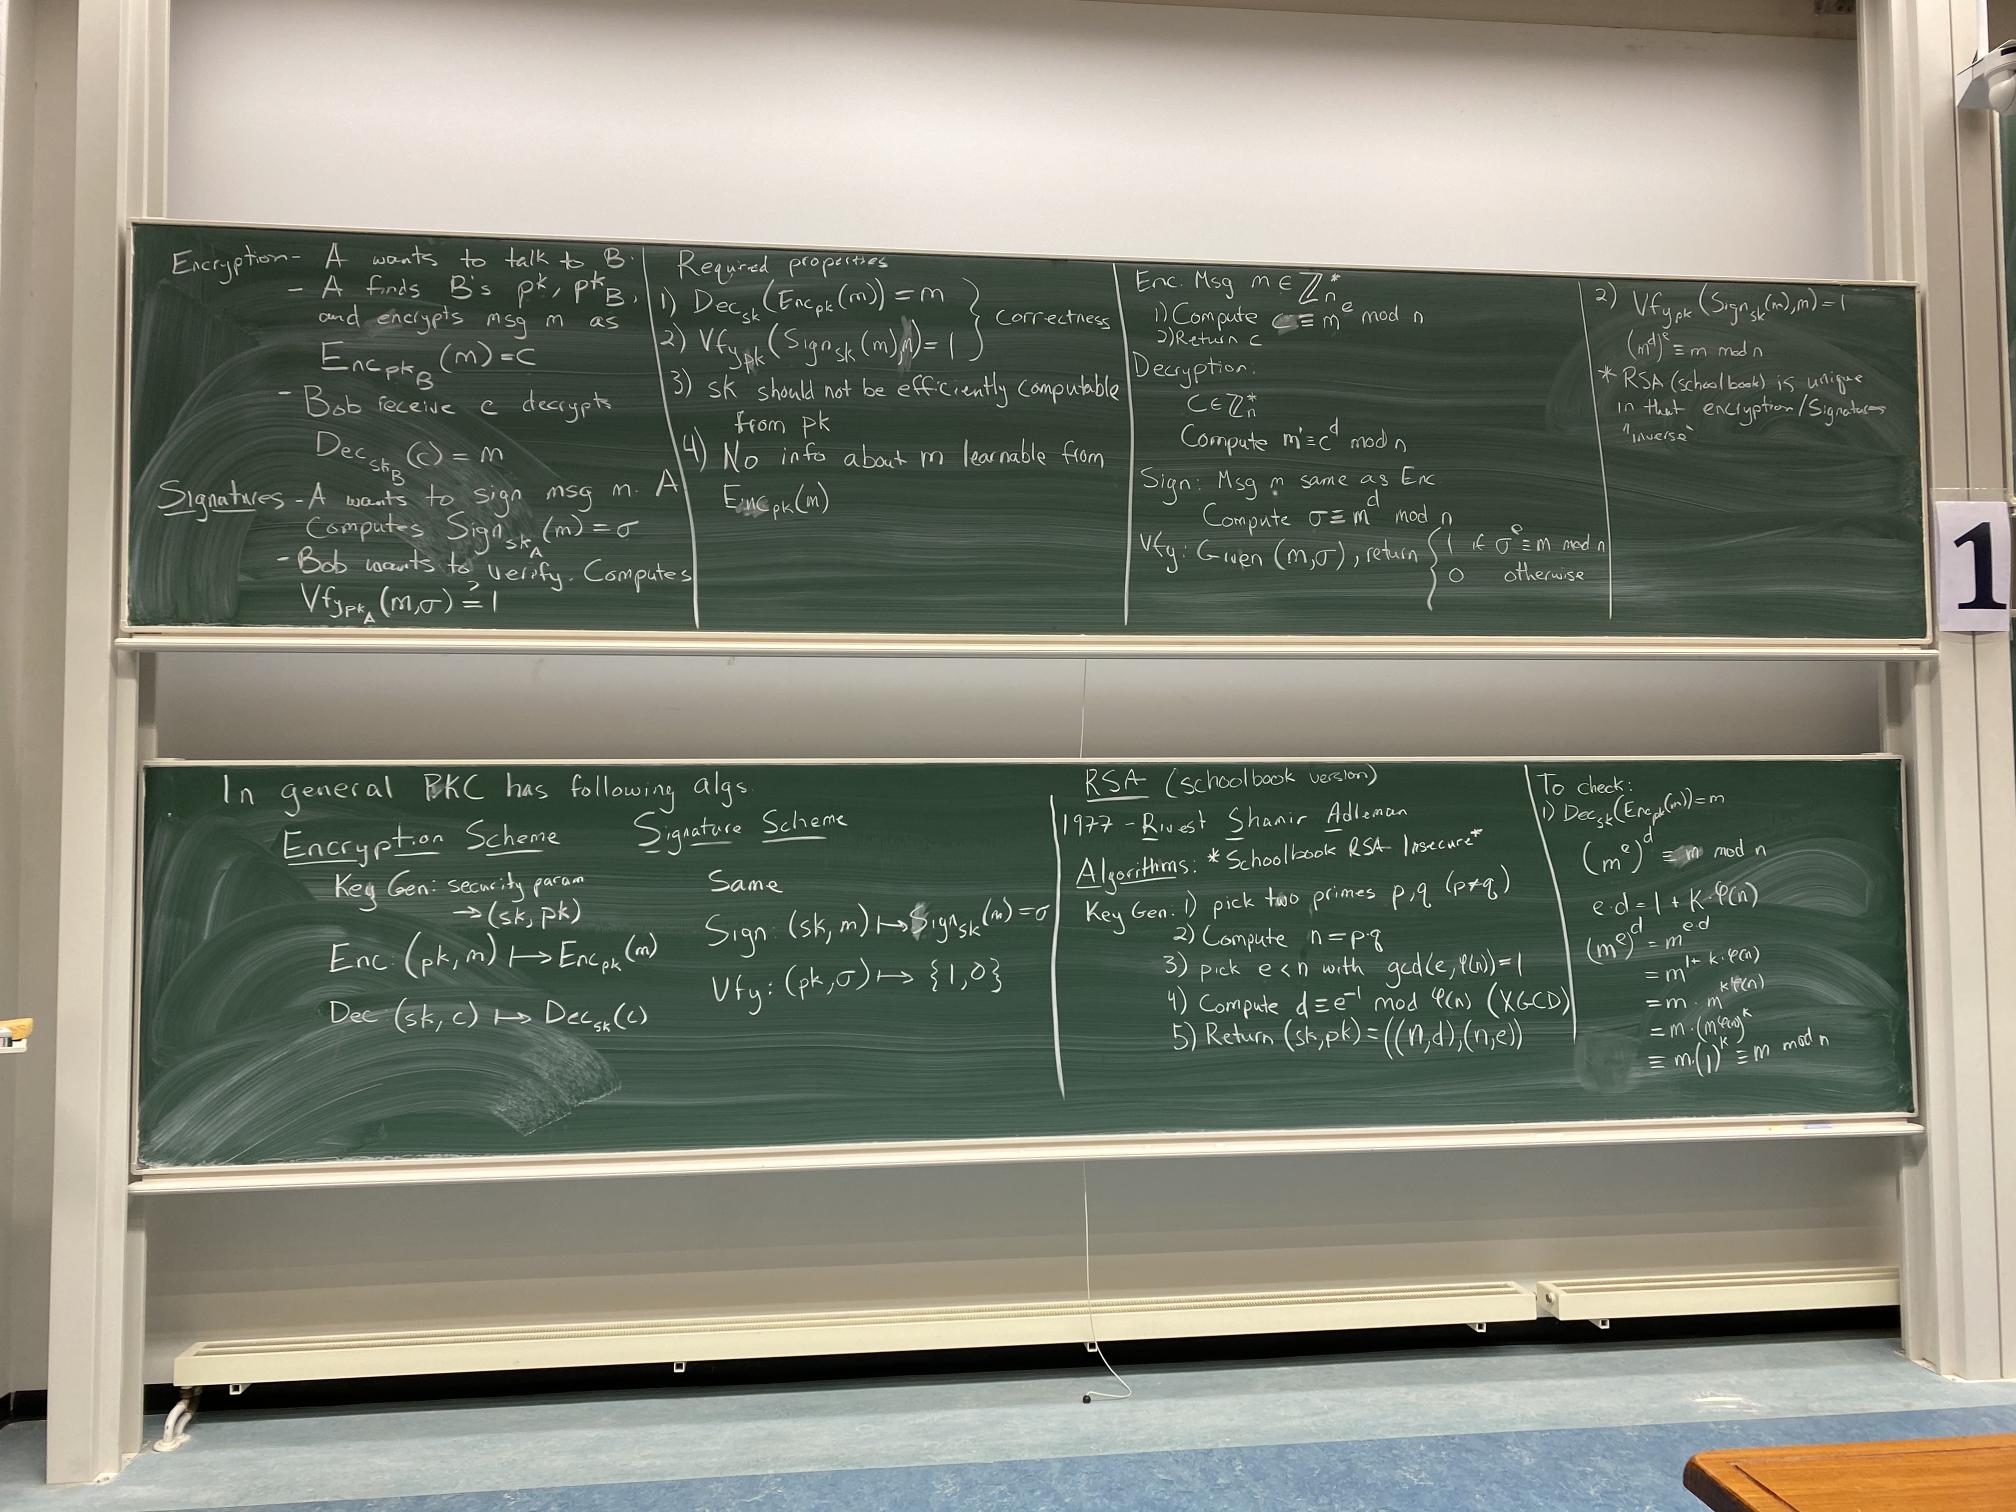 Encryption - A wants to talk to B.
- A finds B's pk, pk_B,
and encrypts msg m as
Enc_pk_B (m) = c
- Bob receive c decrypts
Dec_sk_B (c) = m
Signatures - A wants to sign msg m. A
Computes Sign_sk_A (m) = σ
- Bob wants to verify. Computes
Vfy_pk_A (m,σ) ?= 1
Required properties
1) Dec_sk (Enc_pk (m)) = m
2) Vfy_pk (Sign_sk (m), m) = 1
} correctness
3) sk should not be efficiently computable
from pk
4) No info about m learnable from
Enc_pk (m)
Enc: Msg m ∈ ℤ_n^*
1) Compute c ≡ m^e mod n
2) Return c
Decryption:
c ∈ ℤ_n^*
Compute m' ≡ c^d mod n
Sign: Msg m same as Enc
Compute σ ≡ m^d mod n
Vfy: Given (m,σ), return { 1 if σ^e ≡ m mod n
0 otherwise
2) Vfy_pk (Sign_sk (m), m) = 1
(m^d)^e ≡ m mod n
* RSA (schoolbook) is unique
in that encryption/Signatures
"inverse"
1
In general PKC has following algs.
Encryption Scheme
Key Gen: security param
→ (sk, pk)
Enc: (pk, m) ↦ Enc_pk (m)
Dec: (sk, c) ↦ Dec_sk (c)
Signature Scheme
Same
Sign: (sk, m) ↦ Sign_sk (m) = σ
Vfy: (pk, σ) ↦ {1,0}
RSA (schoolbook version)
1977 - Rivest Shamir Adleman
Algorithms: *Schoolbook RSA Insecure*
Key Gen: 1) pick two primes p,q (p≠q)
2) Compute n = p·q
3) pick e < n with gcd(e, φ(n)) = 1
4) Compute d ≡ e^-1 mod φ(n) (XGCD)
5) Return (sk, pk) = ((n,d),(n,e))
To check:
1) Dec_sk (Enc_pk (m)) = m
(m^e)^d ≡ m mod n
e·d = 1 + k·φ(n)
(m^e)^d = m^e·d
= m^1+k·φ(n)
= m · m^kφ(n)
= m · (m^φ(n))^k
≡ m·(1)^k ≡ m mod n